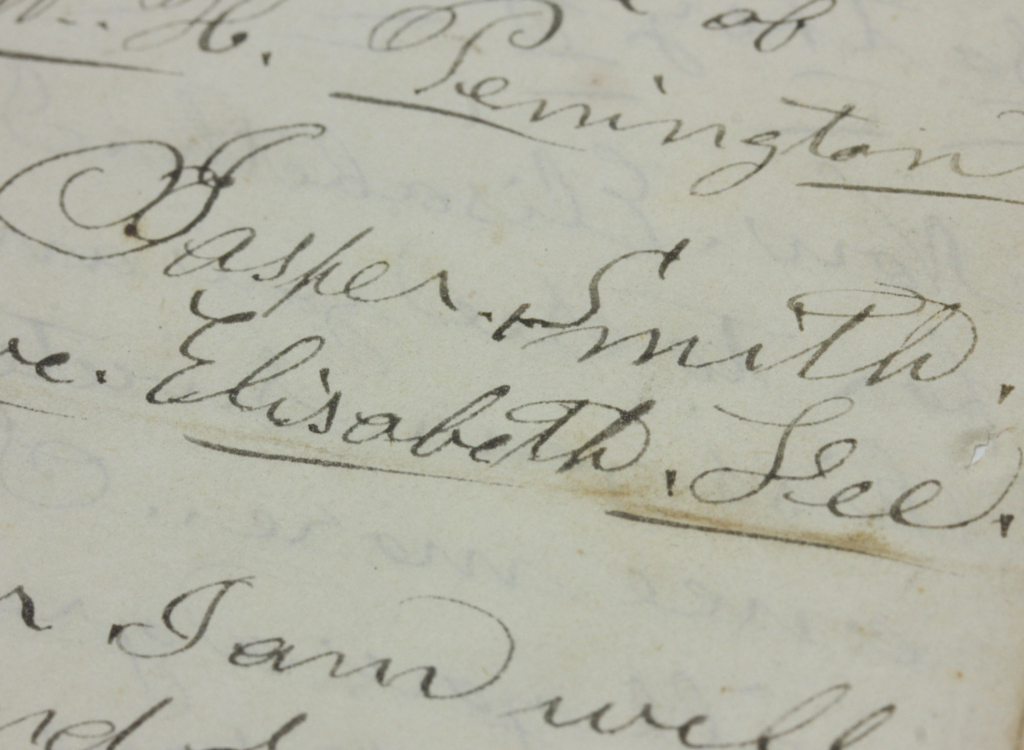 H. of
Penington
Jasper. Smith.
Elisabeth. Lee.
I am well